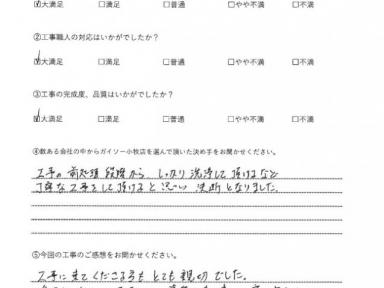 ☑大満足 □満足 □普通 □やや不満 □不満
②工事職人の対応はいかがでしたか？
☑大満足 □満足 □普通 □やや不満 □不満
③工事の完成度、品質はいかがでしたか？
☑大満足 □満足 □普通 □やや不満 □不満
④数ある会社の中からガイソー小牧店を選んで頂いた決め手をお聞かせください。
工事の前処理段階から、しっかり洗浄して頂けるなど
丁寧な工事をして頂けると思い決断となりました。
⑤今回の工事のご感想をお聞かせください。
工事に来てくださる方もとても親切でした。